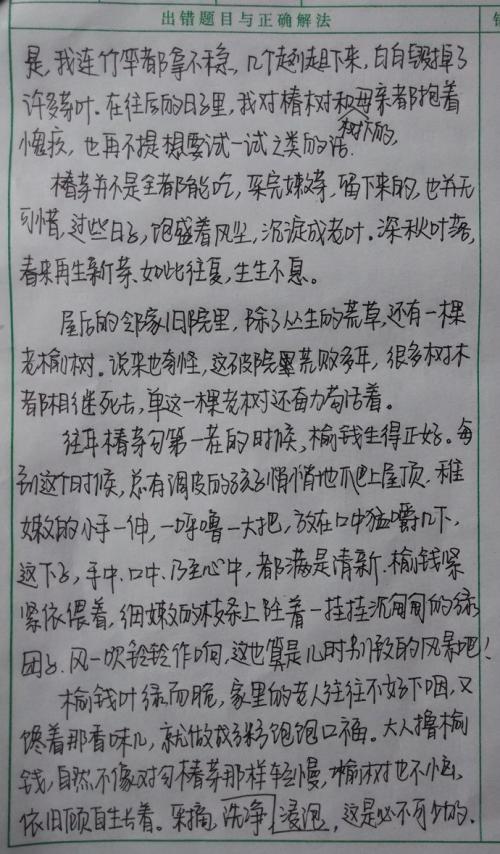 出错题目与正确解法
是,我连竹竿都拿不稳,几个趔趄下来,白白毁掉了
许多芽叶。在往后的日子里,我对椿树和母亲都抱着
树下的,
愧疚,也再不提想要试一试之类的话。
椿芽并不是全都能吃,采完嫩芽,留下来的,也并无
可惜,这些日子,饱盛着风尘,沉淀成老叶。深秋叶落,
春来再生新芽、如此往复,生生不息。
屋后的邻家旧院里,除了丛生的荒草,还有一棵
老榆树。说来也奇怪,这破院墨荒败多年,很多树木
都相继死去,单这一棵老树还奋力苟活着。
往年椿芽勾第一茬的时候,榆钱生得正好。每
到这个时候,总有调皮的孩子悄悄地爬上屋顶.稚
嫩的小手一伸,一呼噜一大把,放在口中猛嚼几下,
这下子,手中、口中、乃至心中,都满是清新.榆钱紧
紧依偎着,细嫩的枝条上陡着一挂挂沉甸甸的绿
团子.风一吹铃铃作响,这也算是儿时别致的风景吧!
榆钱叶绿而脆,家里的老人往往不好下咽,又
馋着那香味儿,就做成粥饱饱口福。大人撸榆
钱,自然不像对勾椿芽那样轻慢,榆树也不小心,
依旧顾自生长着。采摘,洗净,浸泡,这是必不可少的.